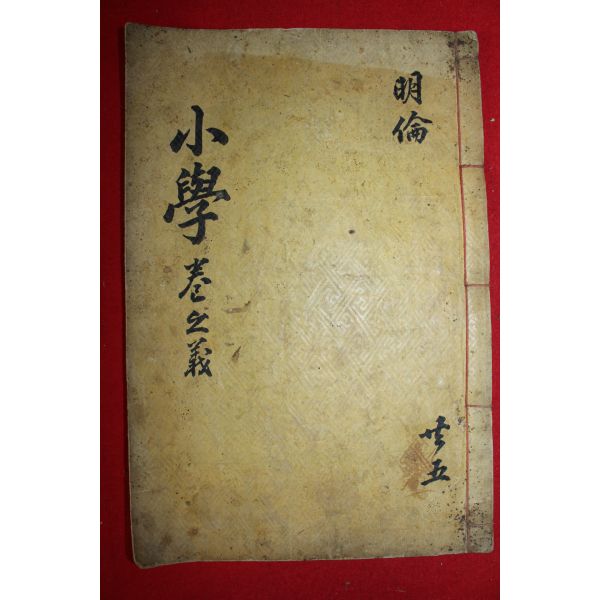 明倫
小學 卷之義
共五